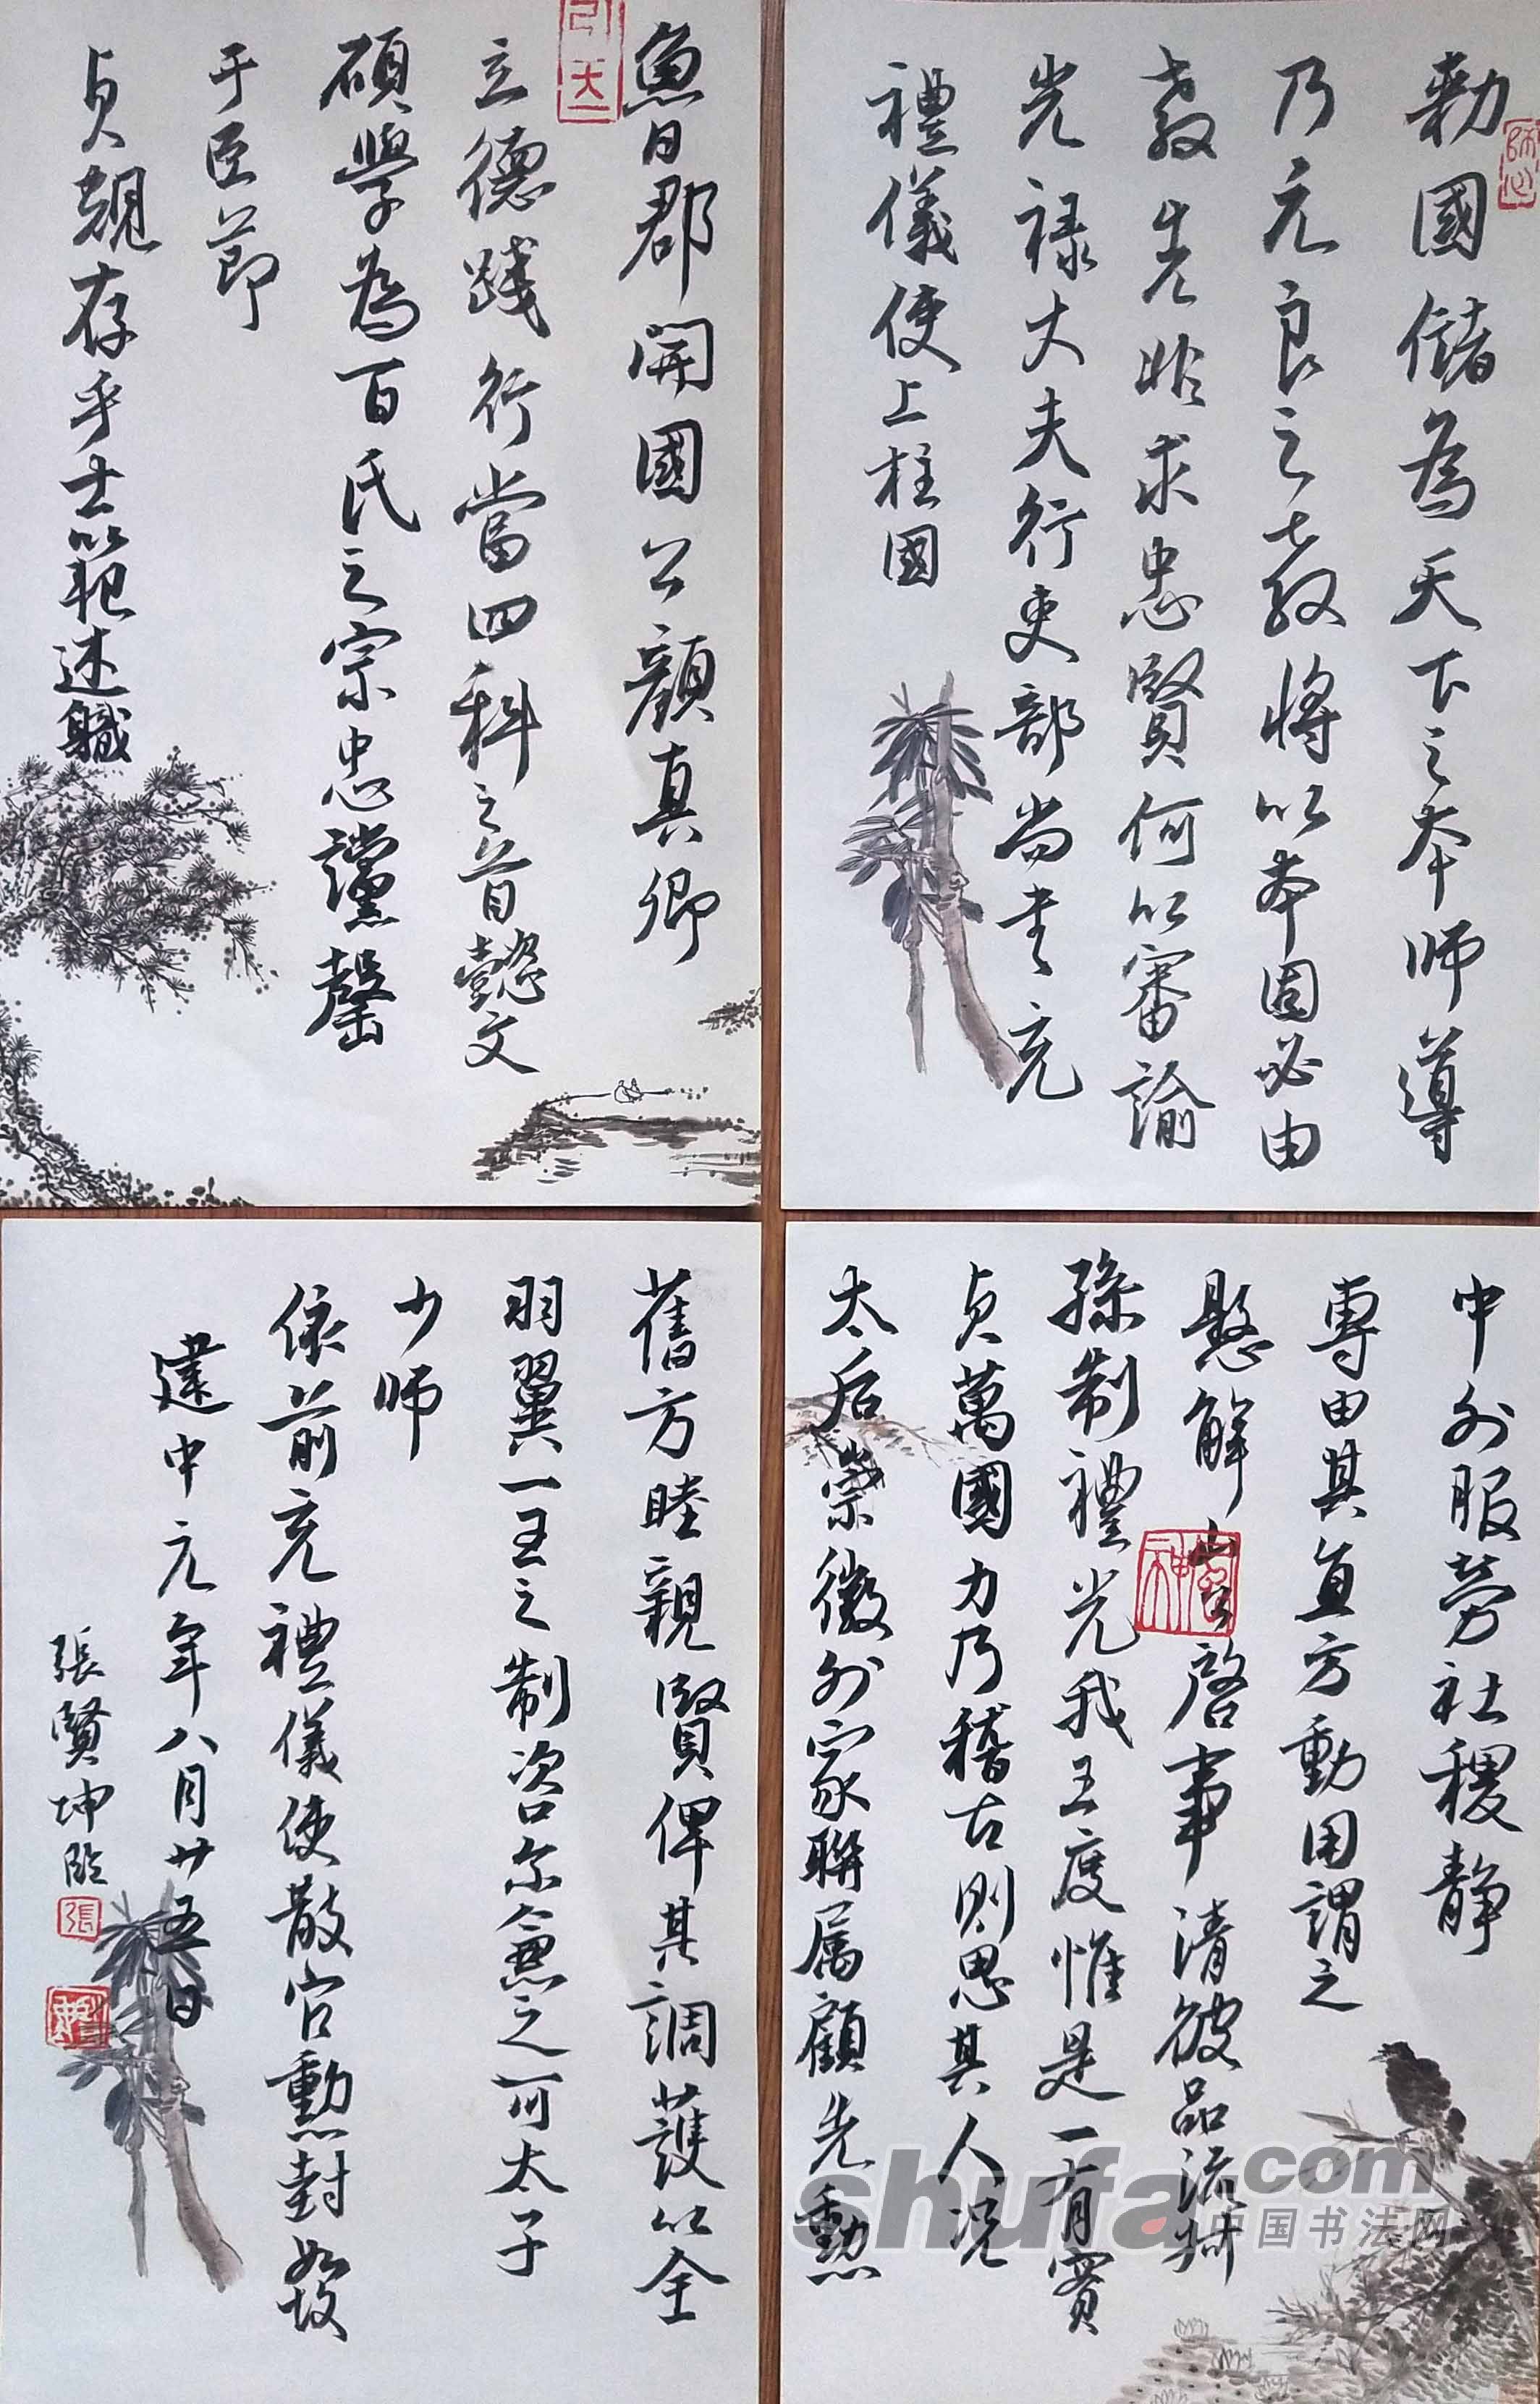 勅國儲為天下之本師導
乃元良之教將以本固必由
教先非求忠賢何以審諭
光禄大夫行吏部尚書充
禮儀使上柱國
魯郡開國公顏真卿
立德踐行當四科之首懿文
碩學為百氏之宗忠讜罄
于臣節
貞規存乎士以範述職
中外服勞社稷静
專由其直方動用謂之
懸解山公啓事清彼品流叔
孫制禮光我王度惟是一有實
貞萬國力乃稽古則思其人況
太后崇徽外家聯属顧先勲
舊方睦親賢俾其調護以全
羽翼一王之制咨尔兼之可太子
少師
依前充禮儀使散官勲封如故
建中元年八月廿五日
張賢坤臨
張
師心
shufa.com
中国书法网